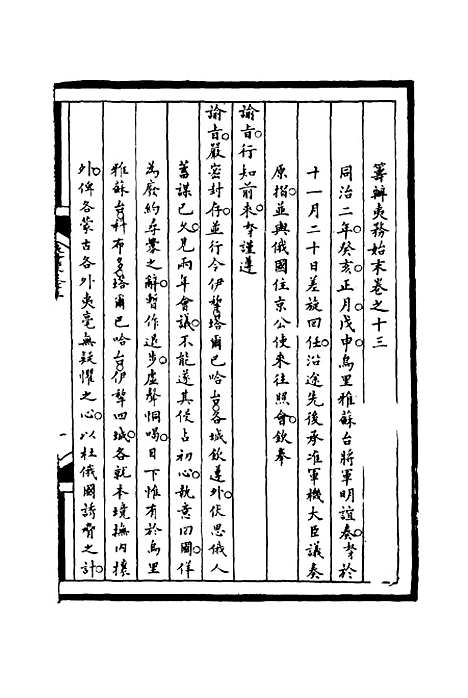 籌辦夷務始末卷之十三
同治二年癸亥正月戊申烏里雅蘇台將軍明誼奏。奴才於
十一月二十日差旋回任。沿途先後承准軍機大臣議奏
原摺。並與俄國住京公使來往照會。欽奉
諭旨。行知前來。奴才謹遵
諭旨。嚴密封存。並行令伊犂塔爾巴哈台各城欽遵外。伏思俄人
蓄謀已久。見兩年會議。不能遂其侵占初心。執意回國。佯
為廢約尋釁之辭。暫作退步。虛聲恫喝。目下惟有於烏里
雅蘇台科布多塔爾巴哈台伊犂四城。各就本境。撫內攘
外。俾各蒙古各外夷毫無疑懼之心。以杜俄國誘脅之計